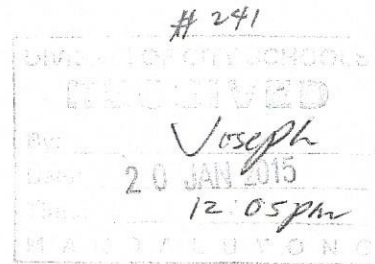 # 241
DIVISION OF CITY SCHOOLS
RECEIVED
By: Joseph
Date: 20 JAN 2015
Time: 12:05pm
MANDALUYONG